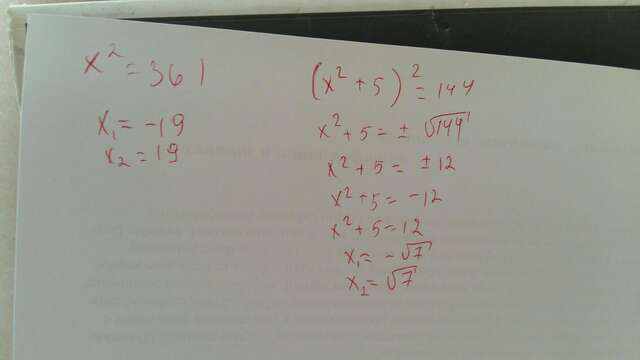 x² = 361
x₁ = -19
x₂ = 19
(x² + 5)² = 144
x² + 5 = ± √144
x² + 5 = ± 12
x² + 5 = -12
x² + 5 = 12
x₁ = -√7
x₂ = √7